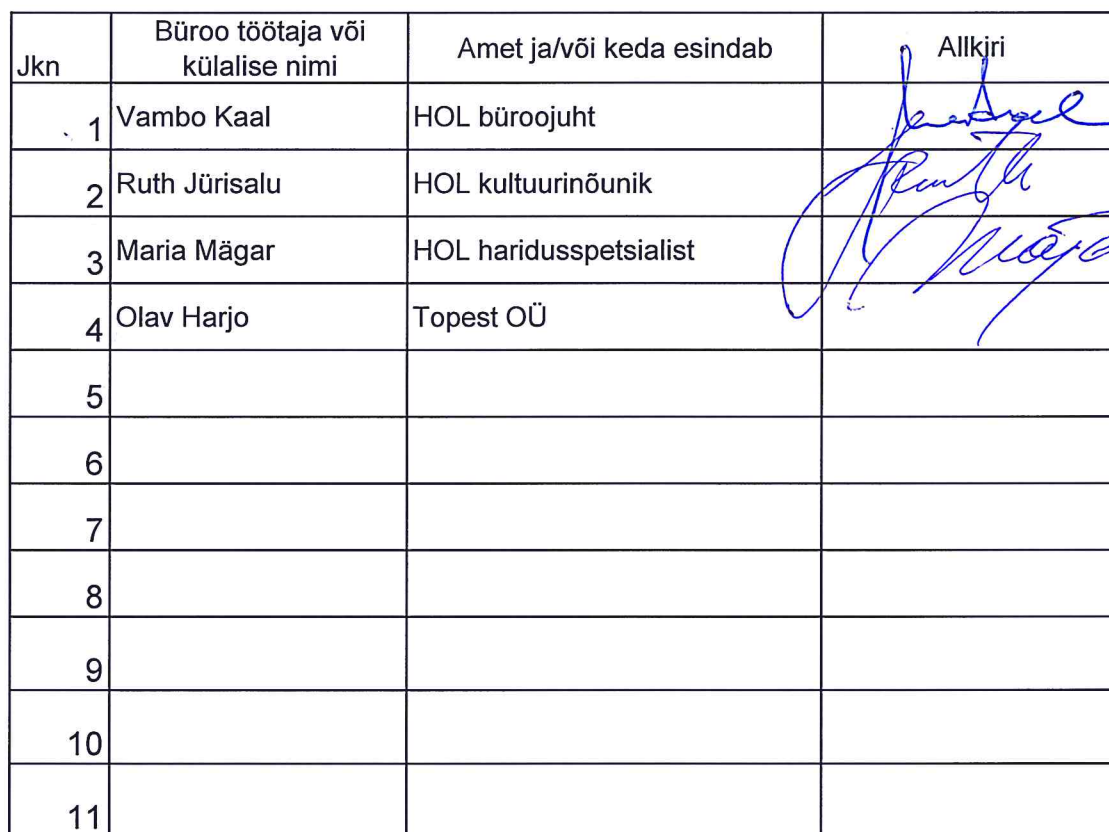 Jkn Büroo töötaja või külalise nimi Amet ja/või keda esindab Allkiri
1 Vambo Kaal HOL büroojuht
2 Ruth Jürisalu HOL kultuurinõunik
3 Maria Mägar HOL haridusspetsialist
4 Olav Harjo Topest OÜ
5
6
7
8
9
10
11